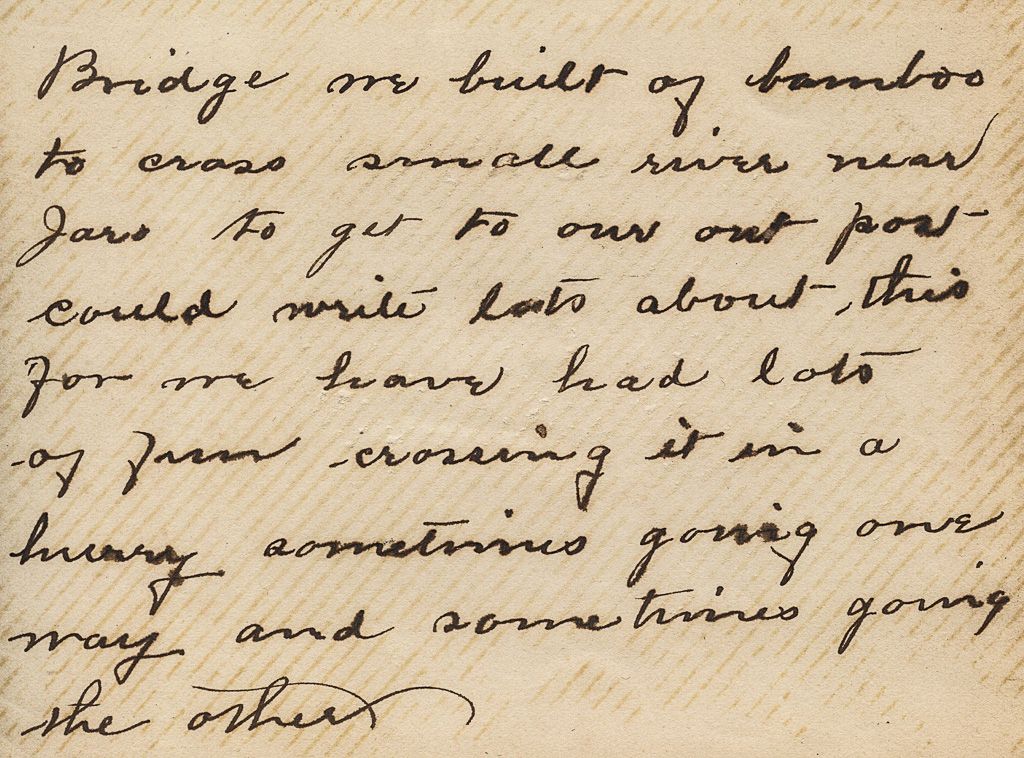 Bridge we built of bamboo
to cross small river near
Jaro to get to our out post
could write lots about this
for we have had lots
of fun crossing it in a
hurry sometimes going one
way and sometimes going
the other